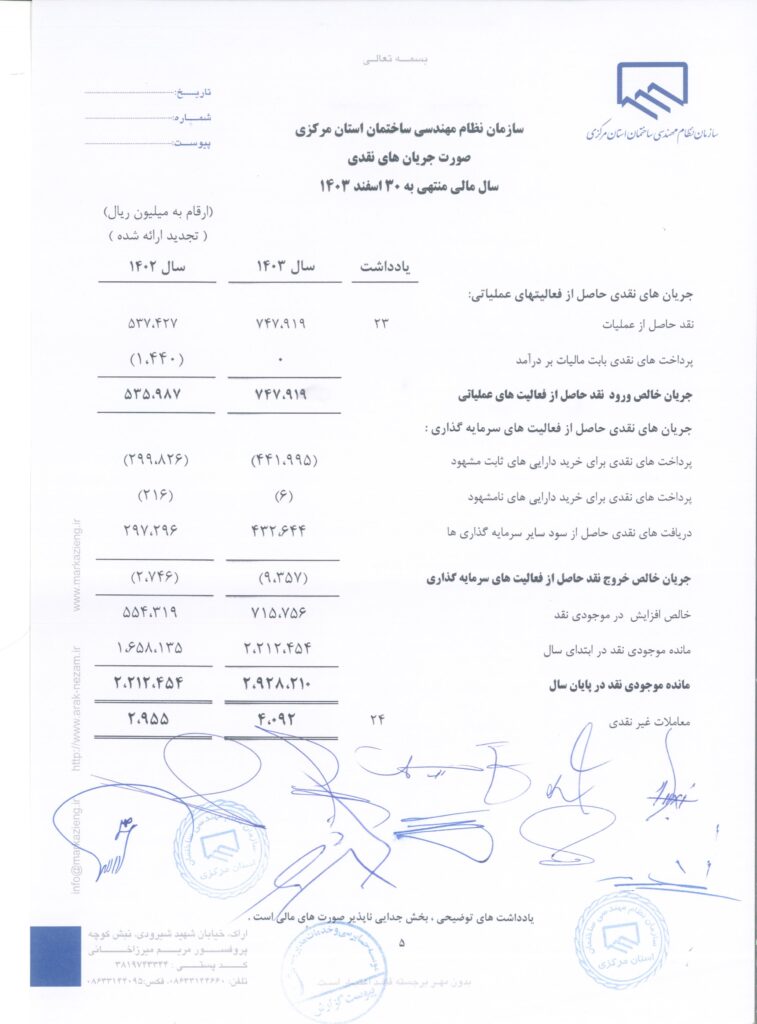 بسمه تعالی
سازمان نظام مهندسی ساختمان استان مرکزی
تاریخ:
شماره:
پیوست:
سازمان نظام مهندسی ساختمان استان مرکزی
صورت جریان های نقدی
سال مالی منتهی به ۳۰ اسفند ۱۴۰۳
(ارقام به میلیون ریال)
( تجدید ارائه شده )
یادداشت سال ۱۴۰۳ سال ۱۴۰۲
جریان های نقدی حاصل از فعالیتهای عملیاتی:
نقد حاصل از عملیات ۲۳ ۷۴۷،۹۱۹ ۵۳۷،۴۲۷
پرداخت های نقدی بابت مالیات بر درآمد ۰ (۱،۴۴۰)
جریان خالص ورود نقد حاصل از فعالیت های عملیاتی ۷۴۷،۹۱۹ ۵۳۵،۹۸۷
جریان های نقدی حاصل از فعالیت های سرمایه گذاری :
پرداخت های نقدی برای خرید دارایی های ثابت مشهود (۴۴۱،۹۹۵) (۲۹۹،۸۲۶)
پرداخت های نقدی برای خرید دارایی های نامشهود (۶) (۲۱۶)
دریافت های نقدی حاصل از سود سایر سرمایه گذاری ها ۴۳۲،۶۴۴ ۲۹۷،۲۹۶
جریان خالص خروج نقد حاصل از فعالیت های سرمایه گذاری (۹،۳۵۷) (۲،۷۴۶)
خالص افزایش در موجودی نقد ۷۱۵،۷۵۶ ۵۵۴،۳۱۹
مانده موجودی نقد در ابتدای سال ۲،۲۱۲،۴۵۴ ۱،۶۵۸،۱۳۵
مانده موجودی نقد در پایان سال ۲،۹۲۸،۲۱۰ ۲،۲۱۲،۴۵۴
معاملات غیر نقدی ۲۴ ۴،۰۹۲ ۲،۹۵۵
www.markazieng.ir
http://www.arak-nezam.ir
info@markazieng.ir
یادداشت های توضیحی ، بخش جدایی ناپذیر صورت های مالی است .
۵
استان مرکزی
استان مرکزی
پیوست گزارش
بدون مهر برجسته فاقد اعتبار است
اراک، خیابان شهید شیرودی، نبش کوچه
پروفسور مریم میرزاخانی
کد پستی : ۳۸۱۹۷۴۳۳۴۴
تلفن: ۰۸۶۳۳۱۴۴۶۶۰ فکس: ۰۸۶۳۳۱۴۴۰۹۵